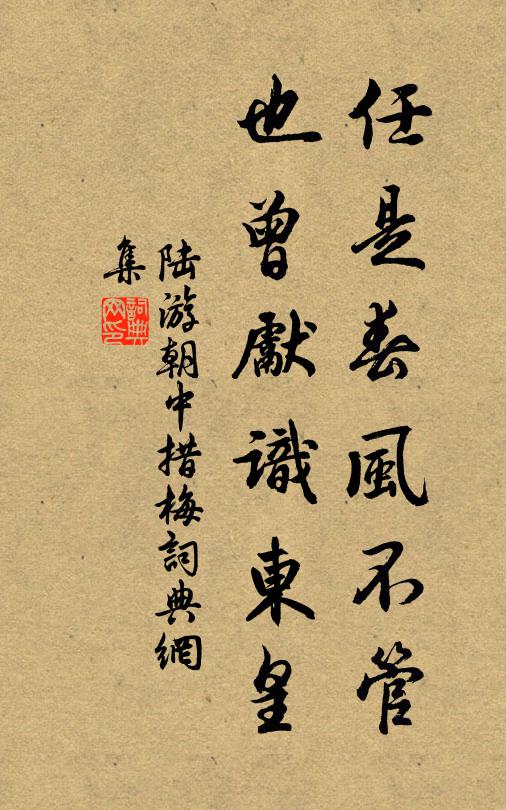 任是春風不管
也曾獻識東皇
陸游朝中措梅詞典網
集
詞典
网印